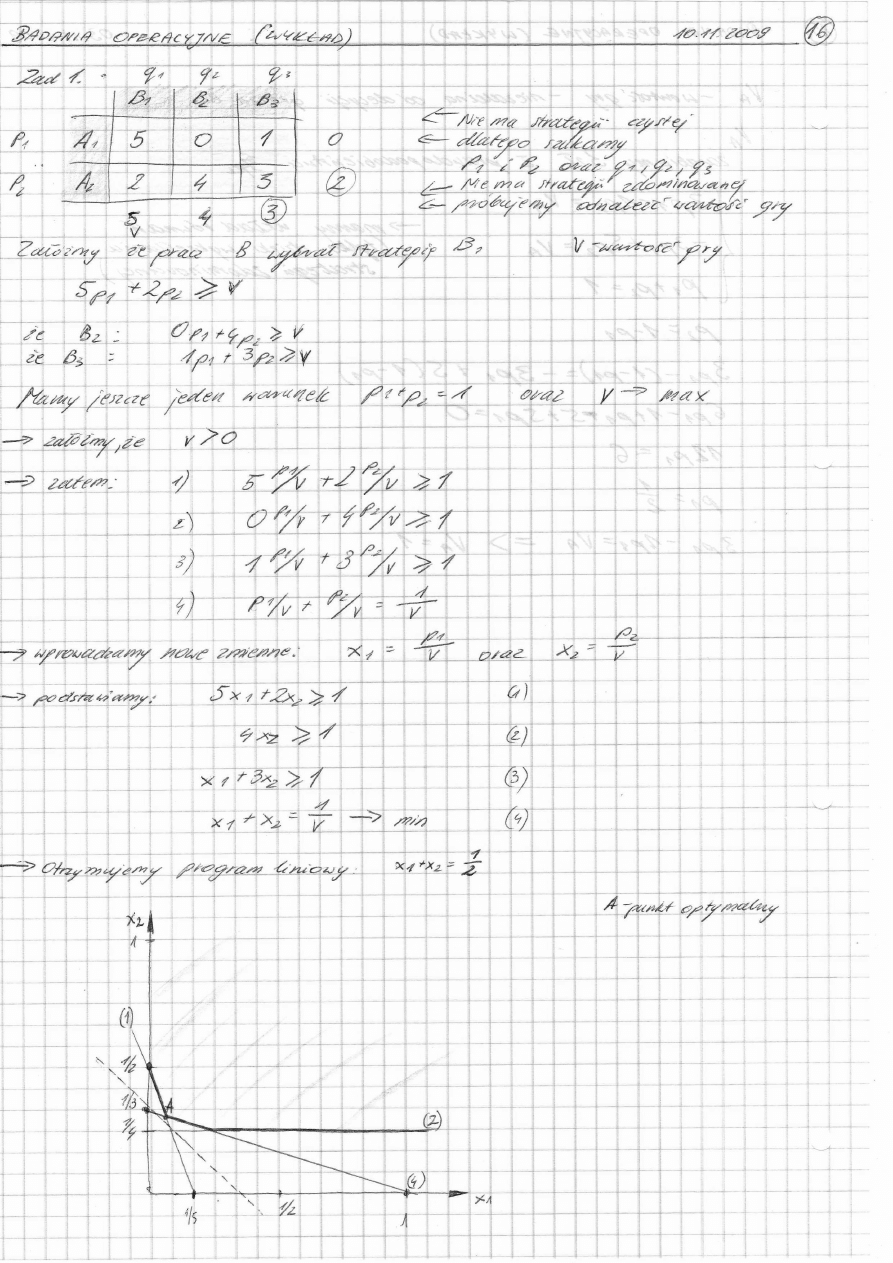 BADANIA OPERACYJNE (WYKŁAD) 10.11.2009 16
Zad 1. q1 q2 q3
B1 B2 B3
P1 A1 5 0 1 0
P2 A2 2 4 3 2
5 4 3
← Nie ma strategii czystej
← dlatego szukamy
P1 i P2 oraz q1, q2, q3
← Nie ma strategii zdominowanej
← próbujemy odnaleźć wartość gry
Załóżmy że gracz B wybrał strategię B1 V-wartość gry
5p1 + 2p2 ≥ V
że B2: 0p1 + 4p2 ≥ V
że B3 = 1p1 + 3p2 ≥ V
Mamy jeszcze jeden warunek p1+p2 = 1 oraz V → max
→ załóżmy, że V > 0
→ zatem: 1) 5 p1/V + 2 p2/V ≥ 1
2) 0 p1/V + 4 p2/V ≥ 1
3) 1 p1/V + 3 p2/V ≥ 1
4) p1/V + p2/V = 1/V
→ wprowadzamy nowe zmienne: x1 = p1/V oraz x2 = p2/V
→ podstawiamy: 5x1 + 2x2 ≥ 1 (1)
4x2 ≥ 1 (2)
x1 + 3x2 ≥ 1 (3)
x1 + x2 = 1/V → min (4)
→ Otrzymujemy program liniowy: x1+x2 = 1/2
A-punkt optymalny
x2
1
(1)
1/2
1/3 A
1/4 (2)
(4)
x1
1/5 1/2 1